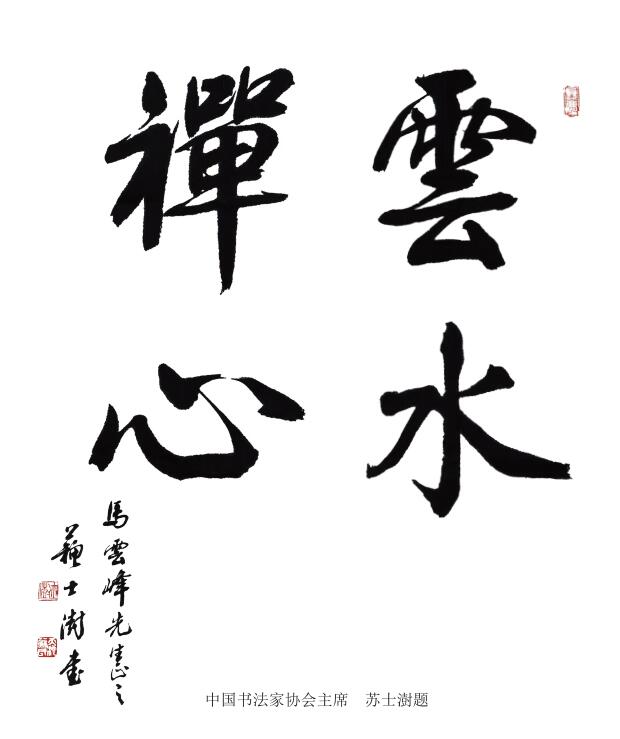 雲水
禪心
馬雲峰先生惠之
蘇士澍書
中国书法家协会主席 苏士澍题